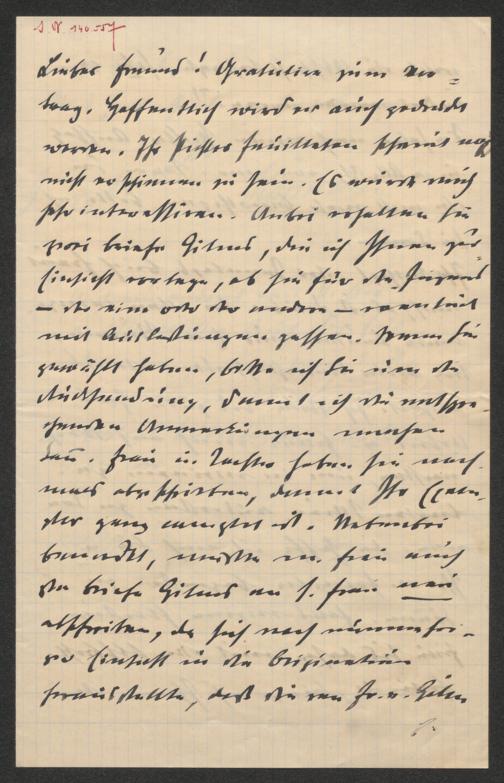 I. N. 140.557
Lieber Freund! Gratuliere zum Vor-
trag. Hoffentlich wird er auch gedruckt
werden. Ihr Pichler Feuilleton scheint noch
nicht erschienen zu sein. Es würde mich
sehr interessiren. Anbei erhalten Sie
zwei Briefe Gilms, die ich Ihnen zur
Einsicht vorlege, ob sie für die Jugend
— der eine oder der andere — eventuell
mit Auslassungen passen. Wenn Sie
gewählt haben, bitte ich Sie um die
Rücksendung, damit ich die entspre-
chenden Anmerkungen machen
kann. Frau u. Tochter haben sie noch-
mals abgeschrieben, damit Ihr Exem-
plar ganz complet ist. Nebenbei
bemerkt, musste m. Frau auch
die Briefe Gilms an s. Frau neu
abschreiben, da sich nach nunmehri-
ger Einsicht in die Originalien
herausstellte, daß die von Fr. v. Gilm